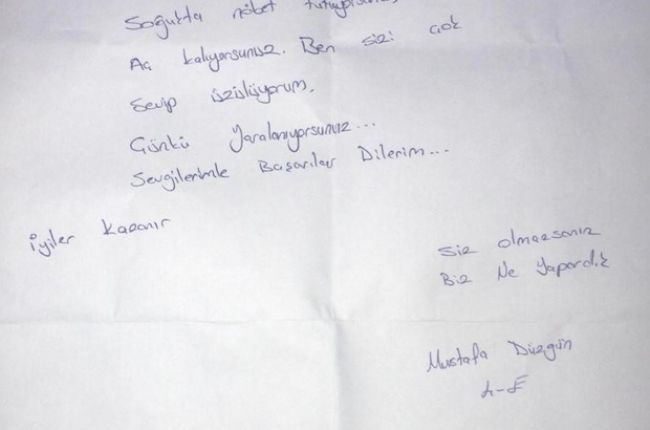 Soğukta nöbet tutuyorsunuz
Aç kalıyorsunuz. Ben sizi çok
Sevip üzülüyorum.
Çünkü Yaralanıyorsunuz...
Sevgilerimle Başarılar Dilerim...
İyiler kazanır
Siz olmazsanız
Biz Ne Yapardık
Mustafa Düzgün
4-E